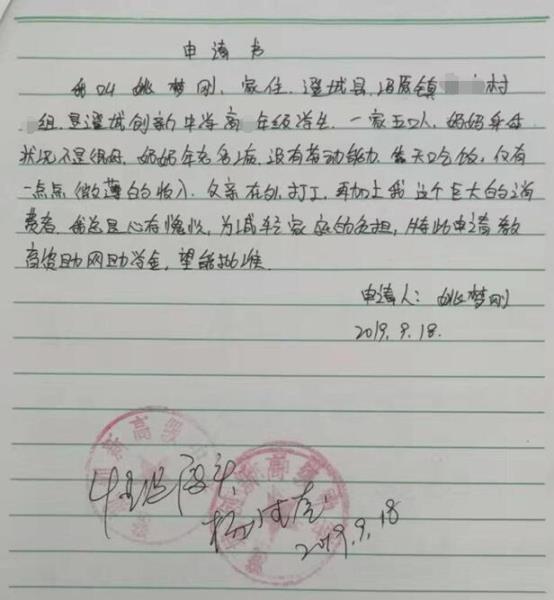 申请书
我叫姚梦刚，家住澄城县冯原镇村
组，是澄城创新中学高年级学生，一家五口人，妈妈身体
状况不是很好，奶奶年老多病，没有劳动能力，靠天吃饭，仅有
一点点微薄的收入，父亲在外打工，再加上我这个巨大的消
费者，我总是心有愧疚，为减轻家庭的负担，特此申请教
育资助网助学金，望能批准
申请人：姚梦刚
2019.9.18.
情况属实
2019.9.18
新高级中
新高级